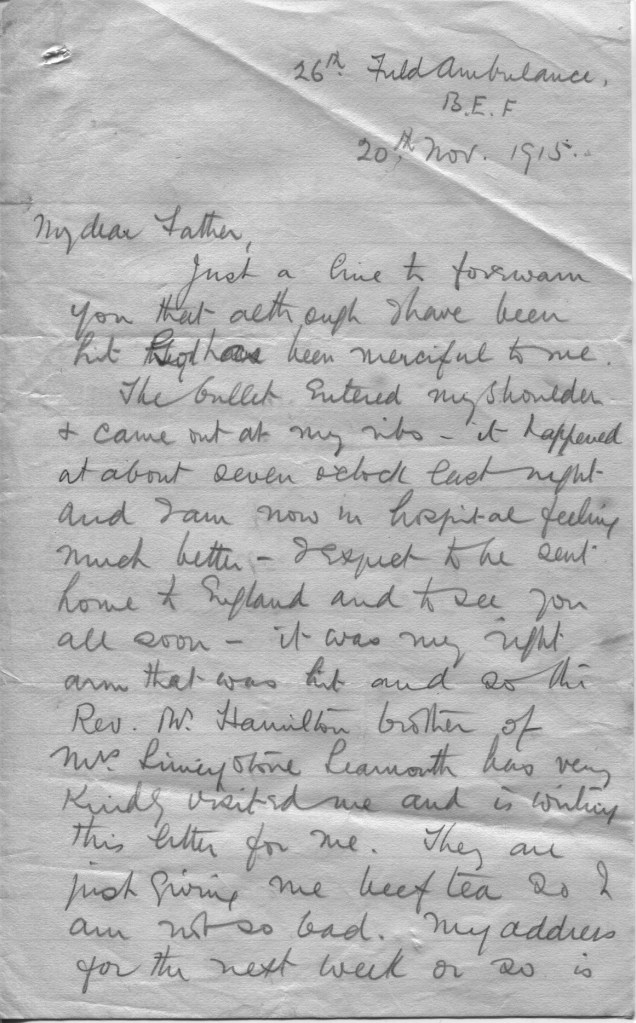 26th Field Ambulance,
B.E.F
20th Nov. 1915.
My dear Father,
Just a line to forewarn
you that although I have been
hit God has been merciful to me.
The bullet entered my shoulder
& came out at my ribs – it happened
at about seven o'clock last night
and I am now in hospital feeling
much better – I expect to be sent
home to England and to see you
all soon – it was my right
arm that was hit and so the
Rev. Mr. Hamilton brother of
Mrs Learmonth has very
kindly visited me and is writing
this letter for me. They are
just giving me beef tea so I
am not so bad. My address
for the next week or so is